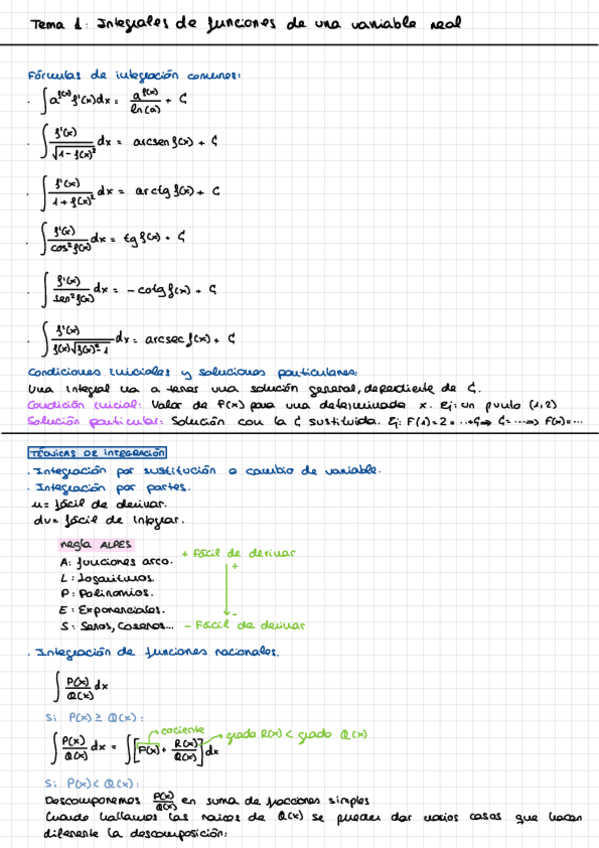 Tema 1: Integrales de funciones de una variable real
Fórmulas de integración comunes:
· ∫ a^f(x) f'(x) dx = a^f(x) / ln(a) + C
· ∫ f'(x) / √(1 - f(x)²) dx = arcsen f(x) + C
· ∫ f'(x) / (1 + f(x)²) dx = arctg f(x) + C
· ∫ f'(x) / cos² f(x) dx = tg f(x) + C
· ∫ f'(x) / sen² f(x) dx = - cotg f(x) + C
· ∫ f'(x) / (f(x) √(f(x)² - 1)) dx = arcsec f(x) + C
Condiciones iniciales y soluciones particulares:
Una integral va a tener una solución general, dependiente de C.
Condición inicial: Valor de F(x) para una determinada x. Ej: un punto (1,2)
Solución particular: Solución con la C sustituida. Ej: F(1) = 2 = ...+C → C = ... → F(x) = ...
TÉCNICAS DE INTEGRACIÓN
· Integración por sustitución o cambio de variable.
· Integración por partes.
u = fácil de derivar.
dv = fácil de integrar.
regla ALPES
+ Fácil de derivar
A: funciones arco.
+
L: Logaritmos.
P: Polinomios.
E: Exponenciales.
-
S: Senos, Cosenos...
- Fácil de derivar
· Integración de funciones racionales.
∫ P(x) / Q(x) dx
Si P(x) ≥ Q(x):
cociente
grado R(x) < grado Q(x)
∫ P(x) / Q(x) dx = ∫ [F(x) + R(x) / Q(x)] dx
Si P(x) < Q(x):
Descomponemos P(x) / Q(x) en suma de fracciones simples
Cuando hallamos las raíces de Q(x) se pueden dar varios casos que hacen
diferente la descomposición: